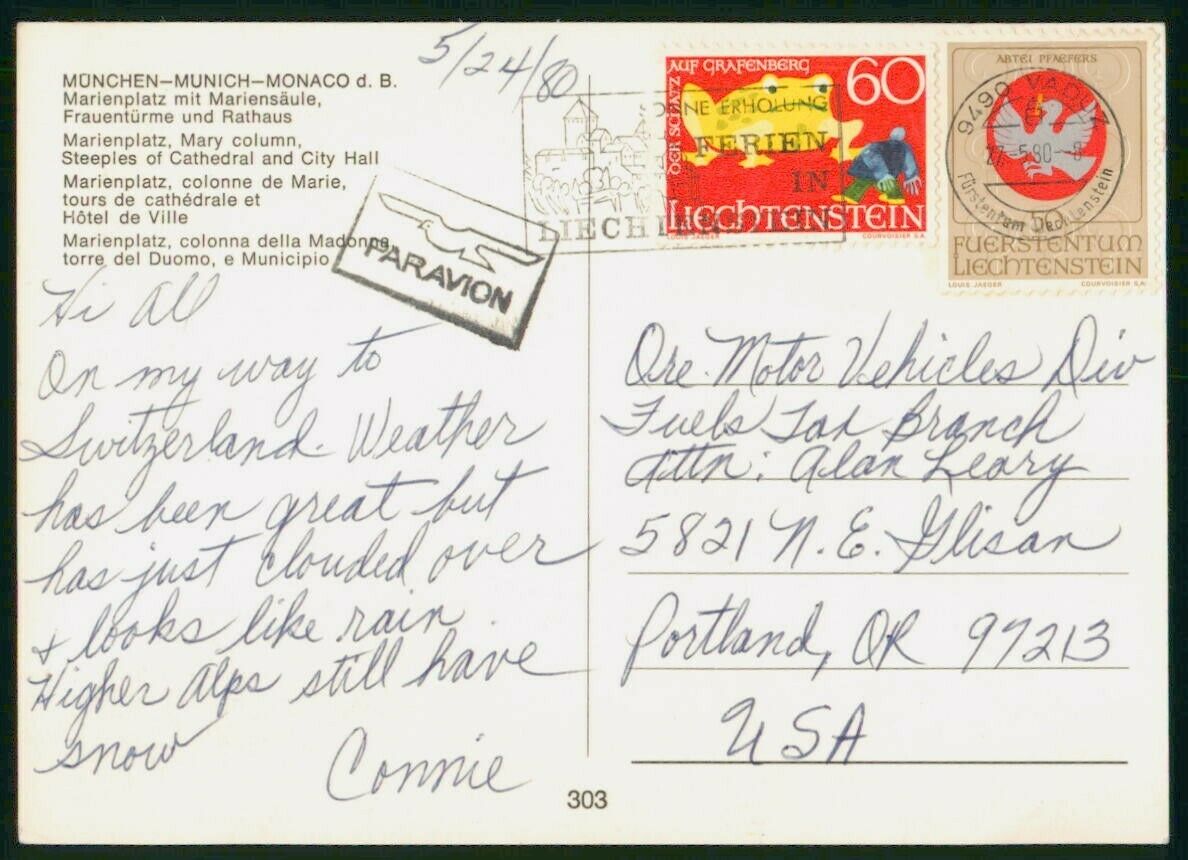 5/24/80
MÜNCHEN–MUNICH–MONACO d. B.
Marienplatz mit Mariensäule,
Frauentürme und Rathaus
Marienplatz, Mary column,
Steeples of Cathedral and City Hall
Marienplatz, colonne de Marie,
tours de cathédrale et
Hôtel de Ville
Marienplatz, colonna della Madonna,
torre del Duomo, e Municipio
PAR AVION
Hi All
On my way to
Switzerland. Weather
has been great but
has just clouded over
+ looks like rain
Higher Alps still have
snow
Connie
303
DER SCHATZ AUF GRAFENBERG
60
LIECHTENSTEIN
LOUIS JAEGER
COURVOISIER S.A.
SONNE ERHOLUNG
FERIEN
IN
LIECHTENSTEIN
ABTEI PFAEFERS
FUERSTENTUM
LIECHTENSTEIN
LOUIS JAEGER
COURVOISIER S.A.
9490 VADUZ
27.-5.80-8
Fürstentum Liechtenstein
Ore. Motor Vehicles Div
Fuels Tax Branch
Attn: Alan Leary
5821 N. E. Glisan
Portland, OR 97213
USA